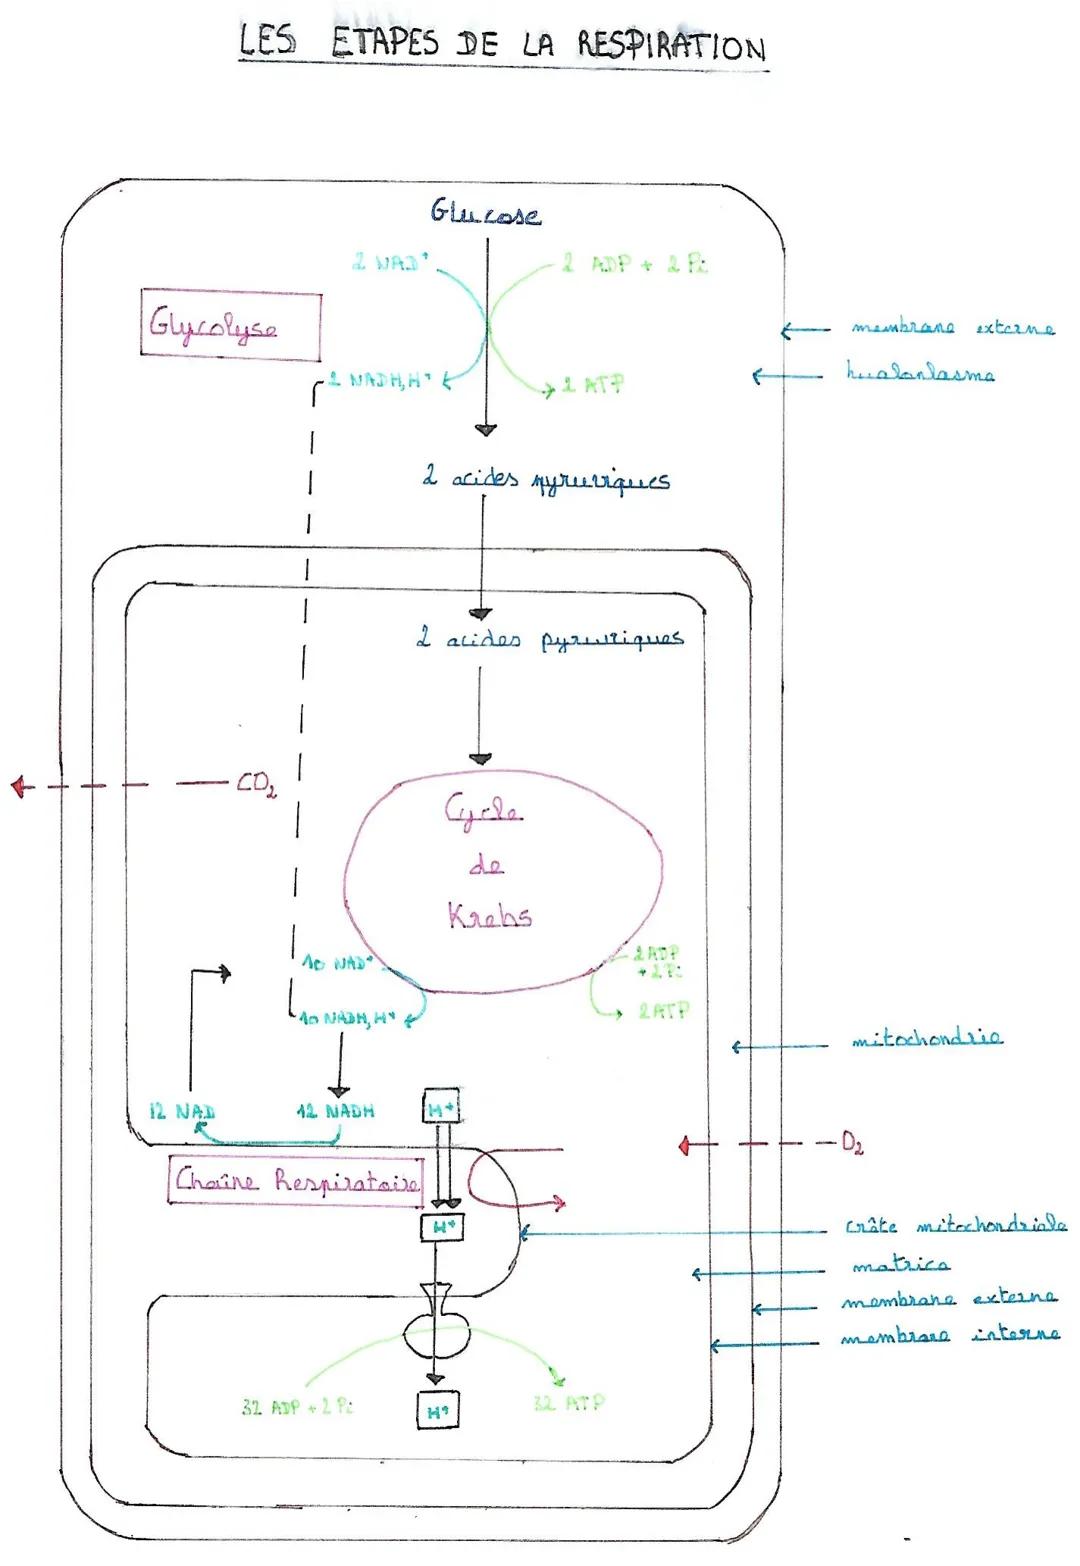 LES ETAPES DE LA RESPIRATION
Glucose
2 NAD⁺
2 ADP + 2 Pi
Glycolyse
membrane externe
2 NADH,H⁺
2 ATP
hyaloplasma
2 acides pyruviques
2 acides pyruviques
CO₂
Cycle
de
Krebs
10 NAD⁺
2 ADP
+ 2 Pi
10 NADH, H⁺
2 ATP
mitochondrie
12 NAD
12 NADH
H⁺
O₂
Chaîne Respiratoire
H⁺
crâte mitochondriale
matrice
membrane externe
membrane interne
32 ADP + 2 Pi
32 ATP
H⁺